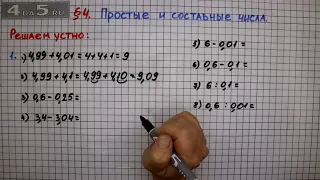 4DS.ru
§4. Простые и составные числа.
Решаем устно:
1. 1) 4,99 + 4,01 = 4+4+1 = 9
2) 4,99 + 4,1 = 4,99 + 4,10 = 9,09
3) 0,6 - 0,25 =
4) 3,4 - 3,04 =
5) 6 - 0,01 =
6) 0,6 - 0,01 =
7) 6 : 0,1 =
8) 0,6 : 0,01 =